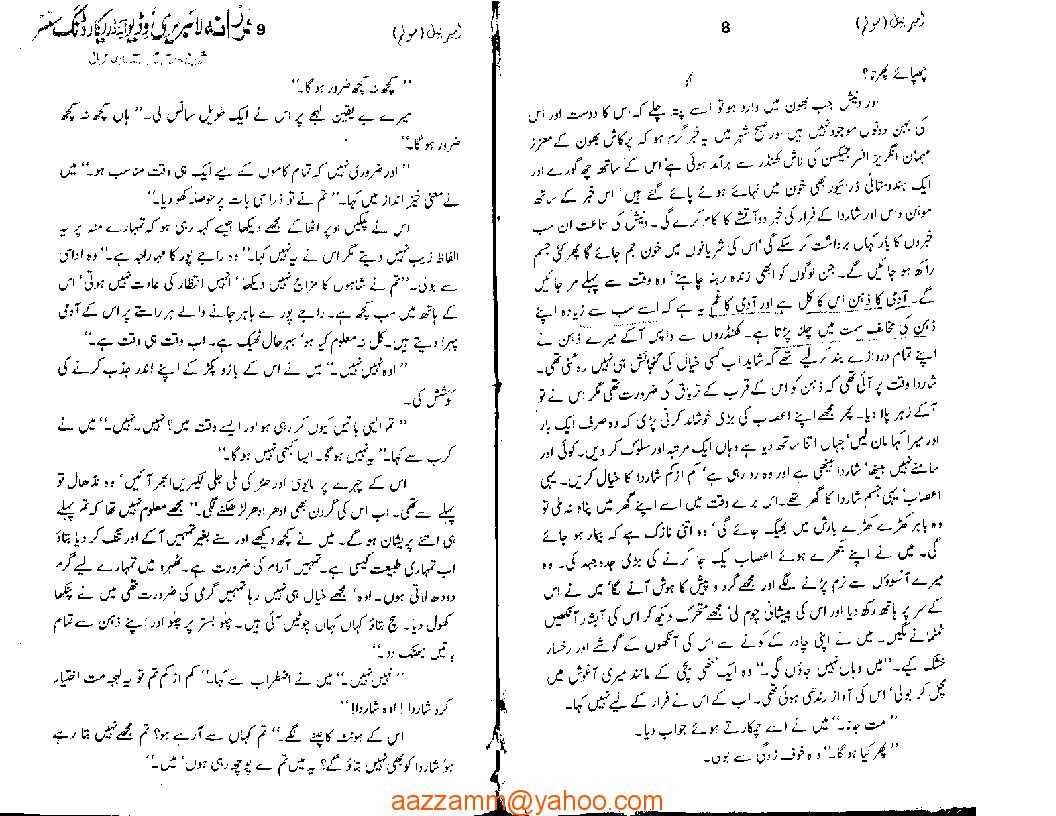 زمبر بیل (سوئم)
8
چھپائے پھرتا؟
اور دنیش جب بھون میں وارد ہو تو اسے پتہ چلے کہ اس کا دوست اور اس
کی بہن دونوں موجود نہیں ہیں اور صبح شہر میں یہ خبر گرم ہو کہ پرکاش بھون کے معزز
مہمان انگریز افسر جیکسن کی لاش کھنڈر سے برآمد ہوئی ہے' اس کے ساتھ چھ گورے اور
ایک ہندوستانی ڈرائیور بھی خون میں نہائے ہوئے پائے گئے ہیں' اس خبر کے ساتھ
موہن داس اور شاردا کے فرار کی خبر دو آتشے کا کام کرے گی۔ دنیش کی سماعت ان سب
خبروں کا بار کہاں برداشت کر سکے گی' اس کی شریانوں میں خون جم جائے گا پھر کئی جسم
راکھ ہو جائیں گے۔ جن لوگوں کو ابھی زندہ رہنا چاہئے' وہ وقت سے پہلے مر جائیں
گے۔ آدمی کا ذہن اس کا کل ہے اور آدمی کا غم یہ ہے کہ اسے سب سے زیادہ اپنے
ذہن کی مخالف سمت میں چلنا پڑتا ہے۔ کھنڈروں سے واپس آکے میرے ذہن نے
اپنے تمام دروازے بند کر لیے تھے کہ شاید اب کسی خیال کی گنجائش ہی نہیں رہ گئی تھی۔
شاردا وقت پر آئی تھی کہ ذہن کو اس کے قرب کے تریاق کی ضرورت تھی مگر اس نے تو
آکے زہر پلا دیا۔ پھر مجھے اپنے اعصاب کی بڑی خوشامد کرنی پڑی کہ وہ صرف ایک بار
اور میرا کہا مان لیں' جہاں اتنا ساتھ دیا ہے وہاں ایک مرتبہ اور سلوک کر دیں۔ کوئی اور
سامنے نہیں بیٹھا' شاردا بیٹھی ہے اور وہ رو رہی ہے' کم از کم شاردا کا خیال کریں۔ یہی
اعصاب' یہی جسم شاردا کا گھر تھے۔ اس برے وقت میں اسے اپنے گھر میں پناہ نہ ملی تو
وہ باہر کھڑے کھڑے بارش میں بھیگ جائے گی' وہ اتنی نازک ہے کہ بیمار ہو جائے
گی۔ میں نے اپنے بکھرے ہوئے اعصاب یک جا کرنے کی بڑی جدوجہد کی۔ وہ
میرے آنسوؤں سے نرم پڑنے لگے اور مجھے گرد و پیش کا ہوش آنے لگا' میں نے اس
کے سر پر ہاتھ رکھ دیا اور اس کی پیشانی چوم لی' مجھے متحرک دیکھ کر اس کی آبشار آنکھیں
ٹمٹمانے لگیں۔ میں نے اپنی چادر کے کونے سے اس کی آنکھوں کے گوشے اور رخسار
خشک کیے۔ ”میں وہاں نہیں جاؤں گی۔“ وہ ایک ننھی بچی کے مانند میری آغوش میں
مچل کر بولی' اس کی آواز رندھی ہوئی تھی۔ اب کے اس نے فرار کے لیے نہیں کہا۔
”مت جانا۔“ میں نے اسے چمکارتے ہوئے جواب دیا۔
”پھر کیا ہو گا۔“ وہ خوف زدگی سے بولی۔
زمبر بیل (سوئم)
9
لائبریری وڈیو اینڈ ریکارڈنگ سنٹر
”کچھ نہ کچھ ضرور ہو گا۔“
میرے بے یقین لہجے پر اس نے ایک طویل سانس لی۔ ”ہاں کچھ نہ کچھ
ضرور ہو گا۔“
”اور ضروری نہیں کہ تمام کاموں کے لیے ایک ہی وقت مناسب ہو۔“ میں
نے معنی خیز انداز میں کہا۔ ”تم نے تو ذرا سی بات پر حوصلہ کھو دیا۔“
اس نے پلکیں اوپر اٹھا کے مجھے دیکھا جیسے کہہ رہی ہو کہ تمہارے منہ پر یہ
الفاظ زیب نہیں دیتے مگر اس نے یہ نہیں کہا۔ ”وہ راجے پور کا مہاراجہ ہے۔“ وہ اداسی
سے بولی۔ ”تم نے شاہوں کا مزاج نہیں دیکھا' انہیں انتظار کی عادت نہیں ہوتی' اس
کے ہاتھ میں سب کچھ ہے۔ راجے پور سے باہر جانے والے ہر راستے پر اس کے آدمی
پہرا دیتے ہیں۔ کل نہ معلوم کیا ہو' بہرحال ٹھیک ہے۔ اب وقت ہی وقت ہے۔“
”اوہ نہیں نہیں۔“ میں نے اس کے بازو پکڑ کے اپنے اندر جذب کرنے کی
کوشش کی۔
”تم ایسی باتیں کیوں کر رہی ہو اور ایسے وقت میں؟ نہیں۔ نہیں۔“ میں نے
کرب سے کہا۔ ”یہ نہیں ہو گا۔ ایسا کبھی نہیں ہو گا۔“
اس کے چہرے پر مایوسی اور حزن کی ملی جلی لکیریں ابھر آئیں' وہ نڈھال تو
پہلے سے تھی۔ اب اس کی گردن بھی ادھر ادھر لڑھکنے لگی۔ ”مجھے معلوم نہیں تھا کہ تم پہلے
ہی اتنے پریشان ہو گے۔ میں نے کچھ دیکھے اور سنے بغیر تمہیں آکے اور تنگ کر دیا' بتاؤ
اب تمہاری طبیعت کیسی ہے۔ تمہیں آرام کی ضرورت ہے۔ ٹھہرو میں تمہارے لیے گرم
دودھ لاتی ہوں۔ اوہ' مجھے خیال ہی نہیں رہا تمہیں گرمی کی ضرورت تھی میں نے پنکھا
کھول دیا۔ سچ بتاؤ کہاں کہاں چوٹیں آئی ہیں۔ چلو بستر پر چلو اور اپنے ذہن سے تمام
باتیں جھٹک دو۔“
”نہیں نہیں۔“ میں نے اضطراب سے کہا۔ ”کم از کم تم تو یہ لہجہ مت اختیار
کرو شاردا! اوہ شاردا!“
اس کے ہونٹ کانپنے لگے۔ ”تم کہاں سے آ رہے ہو؟ تم مجھے نہیں بتا رہے
ہو' شاردا کو بھی نہیں بتاؤ گے؟ یہ میں تم سے پوچھ رہی ہوں' میں۔“
aazzamm@yahoo.com